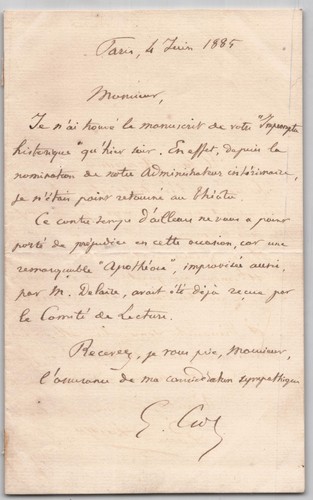 Paris, 4 Juin 1885
Monsieur,
Je n'ai trouvé le manuscrit de votre "Impromptu
historique" qu'hier soir. En effet, depuis la
nomination de notre Administrateur intérimaire,
je n'étais point retourné au théâtre.
Ce contre temps d'ailleurs ne vous a point
porté de préjudice en cette occasion, car une
remarquable "Apothéose", improvisée aussi,
par M. Delair, avait été déjà reçue par
le Comité de Lecture.
Recevez, je vous prie, Monsieur,
l'assurance de ma considération sympathique
G.